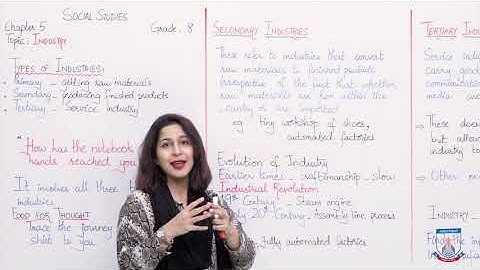 Social Studies
Chapter 5
Grade: 8
Topic: Industry
Types of Industries:
Primary - getting raw materials
Secondary - producing finished products
Tertiary - Service industry
"How has the notebook
hands reached you
It involves all three t
industries
Food for Thought
Trace the journey
shirt to you
Secondary Industries
These refer to industries that convert
raw materials to finished products
irrespective of the fact that whether
raw materials are from within the
country or are imported
eg tiny workshop of shoes,
automated factories
Evolution of Industry
Earlier times - craftsmanship - slow
Industrial Revolution
19th Century - Steam engine
20th Century - Assembly line process
Fully automated factories
Tertiary Indu
Service indu
carry good
communication
media
⇒ These does
but allow
industry to
⇒ Other ex
Industry
Find the